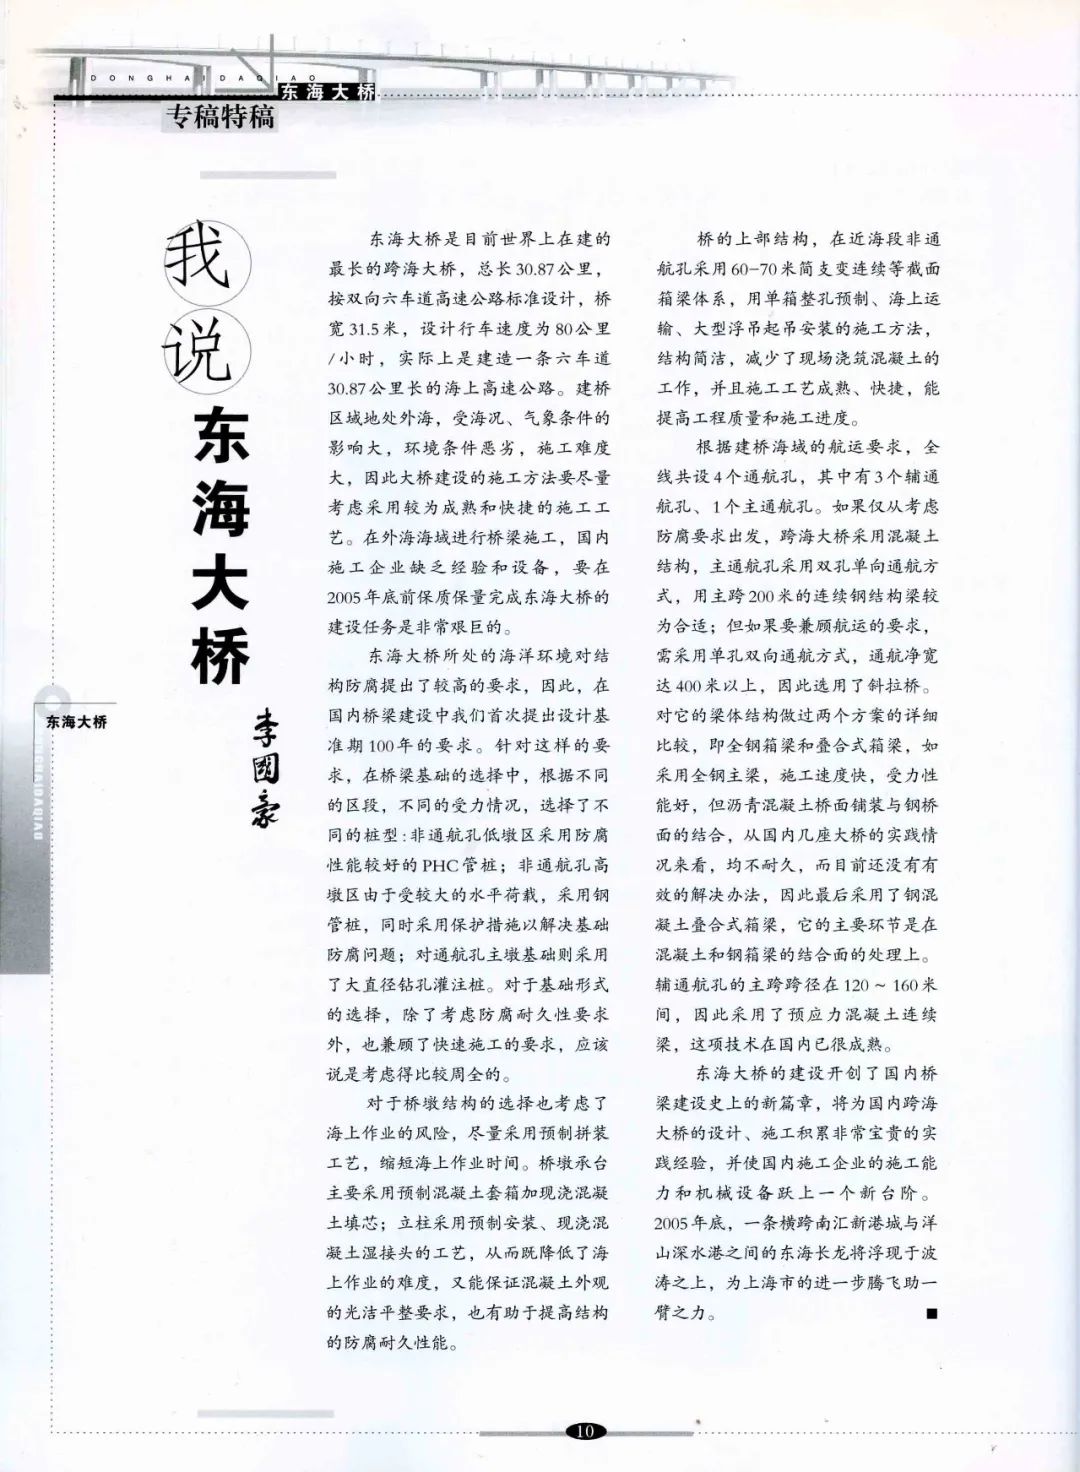 DONGHAIDAQIAO
东海大桥
专稿特稿
我说东海大桥
李国豪
东海大桥是目前世界上在建的
最长的跨海大桥，总长30.87公里，
按双向六车道高速公路标准设计，桥
宽31.5米，设计行车速度为80公里
/小时，实际上是建造一条六车道
30.87公里长的海上高速公路。建桥
区域地处外海，受海况、气象条件的
影响大，环境条件恶劣，施工难度
大，因此大桥建设的施工方法要尽量
考虑采用较为成熟和快捷的施工工
艺。在外海海域进行桥梁施工，国内
施工企业缺乏经验和设备，要在
2005年底前保质保量完成东海大桥的
建设任务是非常艰巨的。
东海大桥所处的海洋环境对结
构防腐提出了较高的要求，因此，在
国内桥梁建设中我们首次提出设计基
准期100年的要求。针对这样的要
求，在桥梁基础的选择中，根据不同
的区段，不同的受力情况，选择了不
同的桩型:非通航孔低墩区采用防腐
性能较好的PHC管桩；非通航孔高
墩区由于受较大的水平荷载，采用钢
管桩，同时采用保护措施以解决基础
防腐问题；对通航孔主墩基础则采用
了大直径钻孔灌注桩。对于基础形式
的选择，除了考虑防腐耐久性要求
外，也兼顾了快速施工的要求，应该
说是考虑得比较周全的。
对于桥墩结构的选择也考虑了
海上作业的风险，尽量采用预制拼装
工艺，缩短海上作业时间。桥墩承台
主要采用预制混凝土套箱加现浇混凝
土填芯；立柱采用预制安装、现浇混
凝土湿接头的工艺，从而既降低了海
上作业的难度，又能保证混凝土外观
的光洁平整要求，也有助于提高结构
的防腐耐久性能。
桥的上部结构，在近海段非通
航孔采用60-70米简支变连续等截面
箱梁体系，用单箱整孔预制、海上运
输、大型浮吊起吊安装的施工方法，
结构简洁，减少了现场浇筑混凝土的
工作，并且施工工艺成熟、快捷，能
提高工程质量和施工进度。
根据建桥海域的航运要求，全
线共设4个通航孔，其中有3个辅通
航孔、1个主通航孔。如果仅从考虑
防腐要求出发，跨海大桥采用混凝土
结构，主通航孔采用双孔单向通航方
式，用主跨200米的连续钢结构梁较
为合适；但如果要兼顾航运的要求，
需采用单孔双向通航方式，通航净宽
达400米以上，因此选用了斜拉桥。
对它的梁体结构做过两个方案的详细
比较，即全钢箱梁和叠合式箱梁，如
采用全钢主梁，施工速度快，受力性
能好，但沥青混凝土桥面铺装与钢桥
面的结合，从国内几座大桥的实践情
况来看，均不耐久，而目前还没有有
效的解决办法，因此最后采用了钢混
凝土叠合式箱梁，它的主要环节是在
混凝土和钢箱梁的结合面的处理上。
辅通航孔的主跨跨径在120～160米
间，因此采用了预应力混凝土连续
梁，这项技术在国内已很成熟。
东海大桥的建设开创了国内桥
梁建设史上的新篇章，将为国内跨海
大桥的设计、施工积累非常宝贵的实
践经验，并使国内施工企业的施工能
力和机械设备跃上一个新台阶。
2005年底，一条横跨南汇新港城与洋
山深水港之间的东海长龙将浮现于波
涛之上，为上海市的进一步腾飞助一
臂之力。
东海大桥
DONGHAIDAQIAO
10